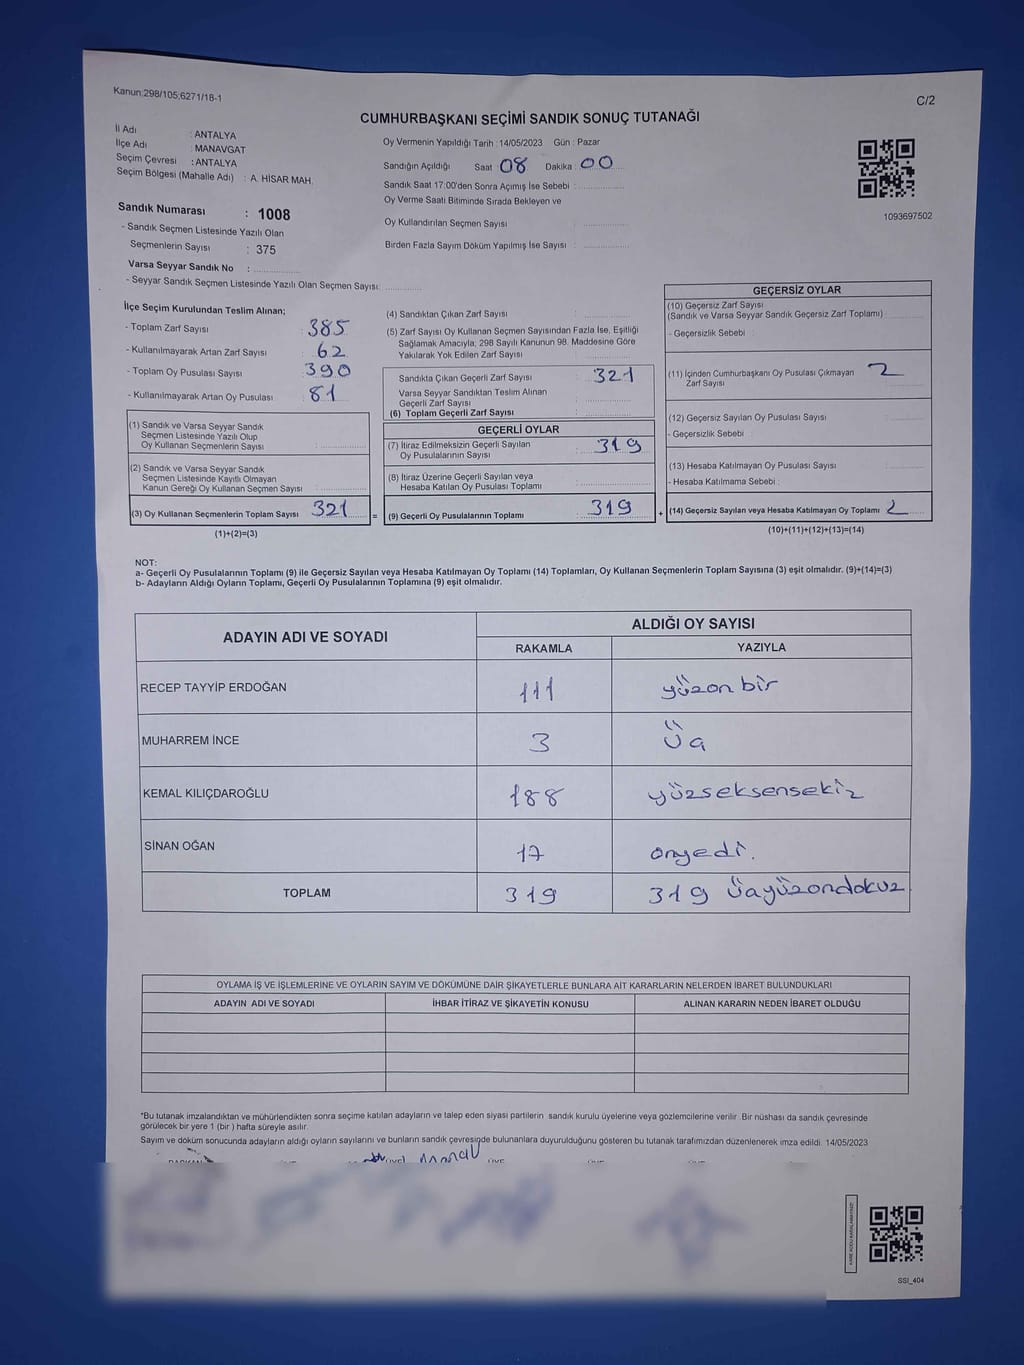 Kanun:298/105;6271/18-1
C/2
CUMHURBAŞKANI SEÇİMİ SANDIK SONUÇ TUTANAĞI
İl Adı : ANTALYA
İlçe Adı : MANAVGAT
Seçim Çevresi : ANTALYA
Seçim Bölgesi (Mahalle Adı) : A. HİSAR MAH.
Sandık Numarası : 1008
- Sandık Seçmen Listesinde Yazılı Olan
Seçmenlerin Sayısı : 375
Varsa Seyyar Sandık No : ..............
- Seyyar Sandık Seçmen Listesinde Yazılı Olan Seçmen Sayısı: ............
Oy Vermenin Yapıldığı Tarih : 14/05/2023 Gün : Pazar
Sandığın Açıldığı Saat 08 Dakika 00
Sandık Saat 17:00'den Sonra Açımış İse Sebebi : ..............
Oy Verme Saati Bitiminde Sırada Bekleyen ve
Oy Kullandırılan Seçmen Sayısı : ..............
Birden Fazla Sayım Döküm Yapılmış İse Sayısı : ..............
1093697502
İlçe Seçim Kurulundan Teslim Alınan;
- Toplam Zarf Sayısı : 385
- Kullanılmayarak Artan Zarf Sayısı : 62
- Toplam Oy Pusulası Sayısı : 390
- Kullanılmayarak Artan Oy Pusulası : 81
(1) Sandık ve Varsa Seyyar Sandık
Seçmen Listesinde Yazılı Olup
Oy Kullanan Seçmenlerin Sayısı : ..............
(2) Sandık ve Varsa Seyyar Sandık
Seçmen Listesinde Kayıtlı Olmayan
Kanun Gereği Oy Kullanan Seçmen Sayısı : ..............
(3) Oy Kullanan Seçmenlerin Toplam Sayısı 321 =
(1)+(2)=(3)
(4) Sandıktan Çıkan Zarf Sayısı : ..............
(5) Zarf Sayısı Oy Kullanan Seçmen Sayısından Fazla İse, Eşitliği
Sağlamak Amacıyla; 298 Sayılı Kanunun 98. Maddesine Göre
Yakılarak Yok Edilen Zarf Sayısı : ..............
Sandıkta Çıkan Geçerli Zarf Sayısı : 321
Varsa Seyyar Sandıktan Teslim Alınan
Geçerli Zarf Sayısı : ..............
(6) Toplam Geçerli Zarf Sayısı : ..............
GEÇERLİ OYLAR
(7) İtiraz Edilmeksizin Geçerli Sayılan
Oy Pusulalarının Sayısı : 319
(8) İtiraz Üzerine Geçerli Sayılan veya
Hesaba Katılan Oy Pusulası Toplamı : ..............
(9) Geçerli Oy Pusulalarının Toplamı 319 +
GEÇERSİZ OYLAR
(10) Geçersiz Zarf Sayısı
(Sandık ve Varsa Seyyar Sandık Geçersiz Zarf Toplamı) ..............
- Geçersizlik Sebebi :
(11) İçinden Cumhurbaşkanı Oy Pusulası Çıkmayan
Zarf Sayısı 2
(12) Geçersiz Sayılan Oy Pusulası Sayısı ..............
- Geçersizlik Sebebi :
(13) Hesaba Katılmayan Oy Pusulası Sayısı ..............
- Hesaba Katılmama Sebebi :
(14) Geçersiz Sayılan veya Hesaba Katılmayan Oy Toplamı 2
(10)+(11)+(12)+(13)=(14)
NOT:
a- Geçerli Oy Pusulalarının Toplamı (9) ile Geçersiz Sayılan veya Hesaba Katılmayan Oy Toplamı (14) Toplamları, Oy Kullanan Seçmenlerin Toplam Sayısına (3) eşit olmalıdır. (9)+(14)=(3)
b- Adayların Aldığı Oyların Toplamı, Geçerli Oy Pusulalarının Toplamına (9) eşit olmalıdır.
ADAYIN ADI VE SOYADI
ALDIĞI OY SAYISI
RAKAMLA YAZIYLA
RECEP TAYYİP ERDOĞAN 111 yüzon bir
MUHARREM İNCE 3 Üç
KEMAL KILIÇDAROĞLU 188 yüzseksensekiz
SİNAN OĞAN 17 onyedi.
TOPLAM 319 319 üçyüzondokuz
OYLAMA İŞ VE İŞLEMLERİNE VE OYLARIN SAYIM VE DÖKÜMÜNE DAİR ŞİKAYETLERLE BUNLARA AİT KARARLARIN NELERDEN İBARET BULUNDUKLARI
ADAYIN ADI VE SOYADI İHBAR İTİRAZ VE ŞİKAYETİN KONUSU ALINAN KARARIN NEDEN İBARET OLDUĞU
*Bu tutanak imzalandıktan ve mühürlendikten sonra seçime katılan adayların ve talep eden siyasi partilerin sandık kurulu üyelerine veya gözlemcilerine verilir. Bir nüshası da sandık çevresinde
görülecek bir yere 1 (bir ) hafta süreyle asılır.
Sayım ve döküm sonucunda adayların aldığı oyların sayılarını ve bunların sandık çevresinde bulunanlara duyurulduğunu gösteren bu tutanak tarafımızdan düzenlenerek imza edildi. 14/05/2023
SSI_404